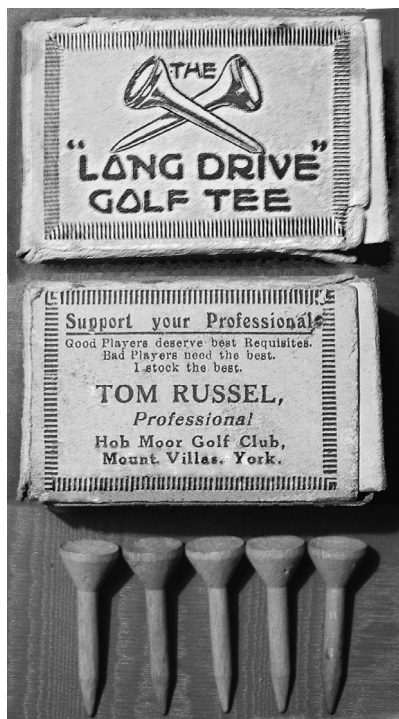 THE
"LONG DRIVE"
GOLF TEE
Support your Professional.
Good Players deserve best Requisites.
Bad Players need the best.
I stock the best.
TOM RUSSEL,
Professional
Hob Moor Golf Club,
Mount. Villas. York.